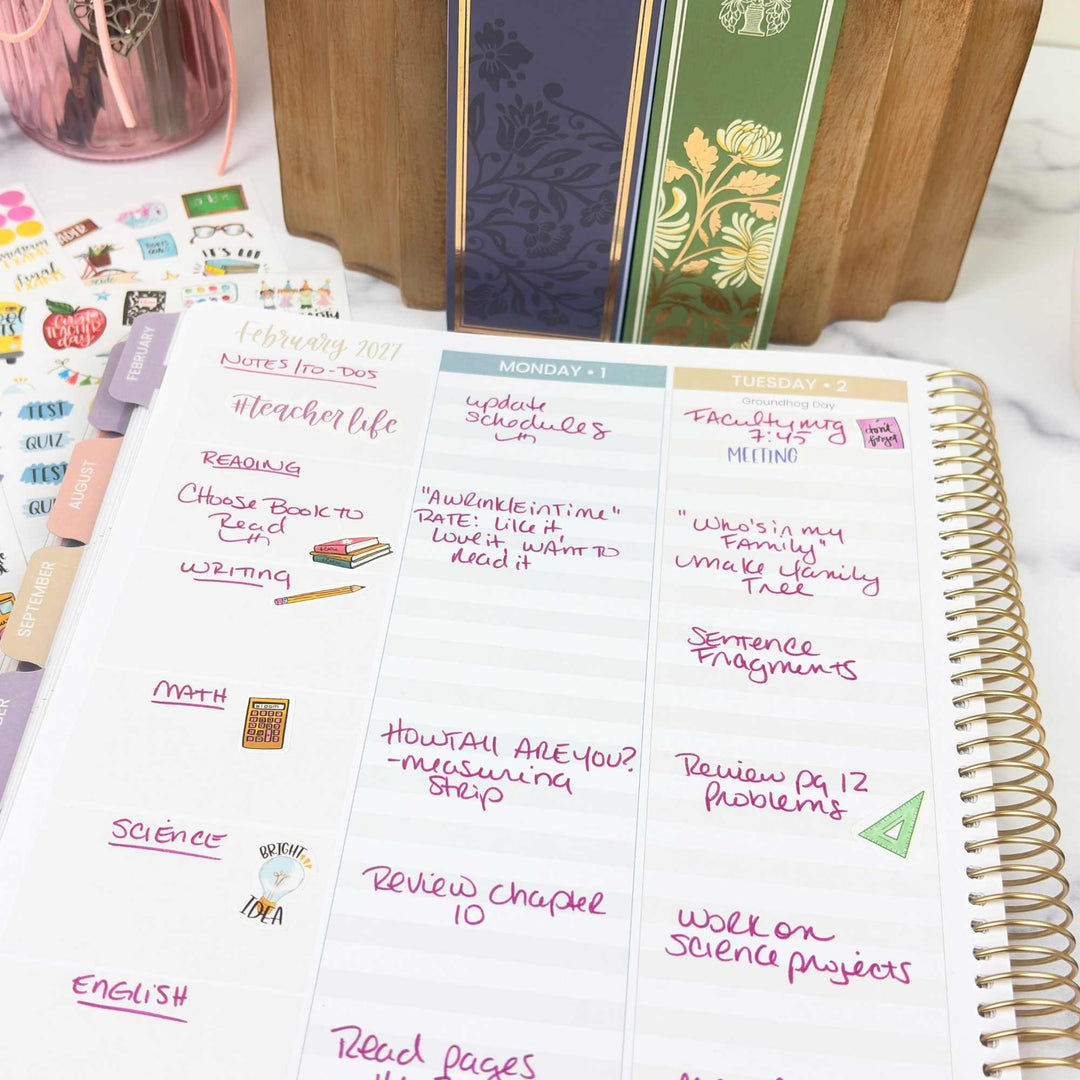 February 2027
NOTES/TO-DOS
#teacherlife
READING
CHOOSE BOOK TO
READ
WRITING
MATH
bloom
SCIENCE
BRIGHT
IDEA
ENGLISH
MONDAY • 1
update
schedules
"A WRINKLE IN TIME"
RATE: Like it,
Love it, WANT TO
Read it
HOW TALL ARE YOU?
-measuring
strip
Review chapter
10
Read pages
TUESDAY • 2
Groundhog Day
FACULTY MTG
7:45
don't
forget
MEETING
"Who's in my
Family"
make family
Tree
SENTENCE
Fragments
Review pg 12
Problems
WORK ON
science projects
FEBRUARY
AUGUST
SEPTEMBER
TEST
QUIZ
TEST